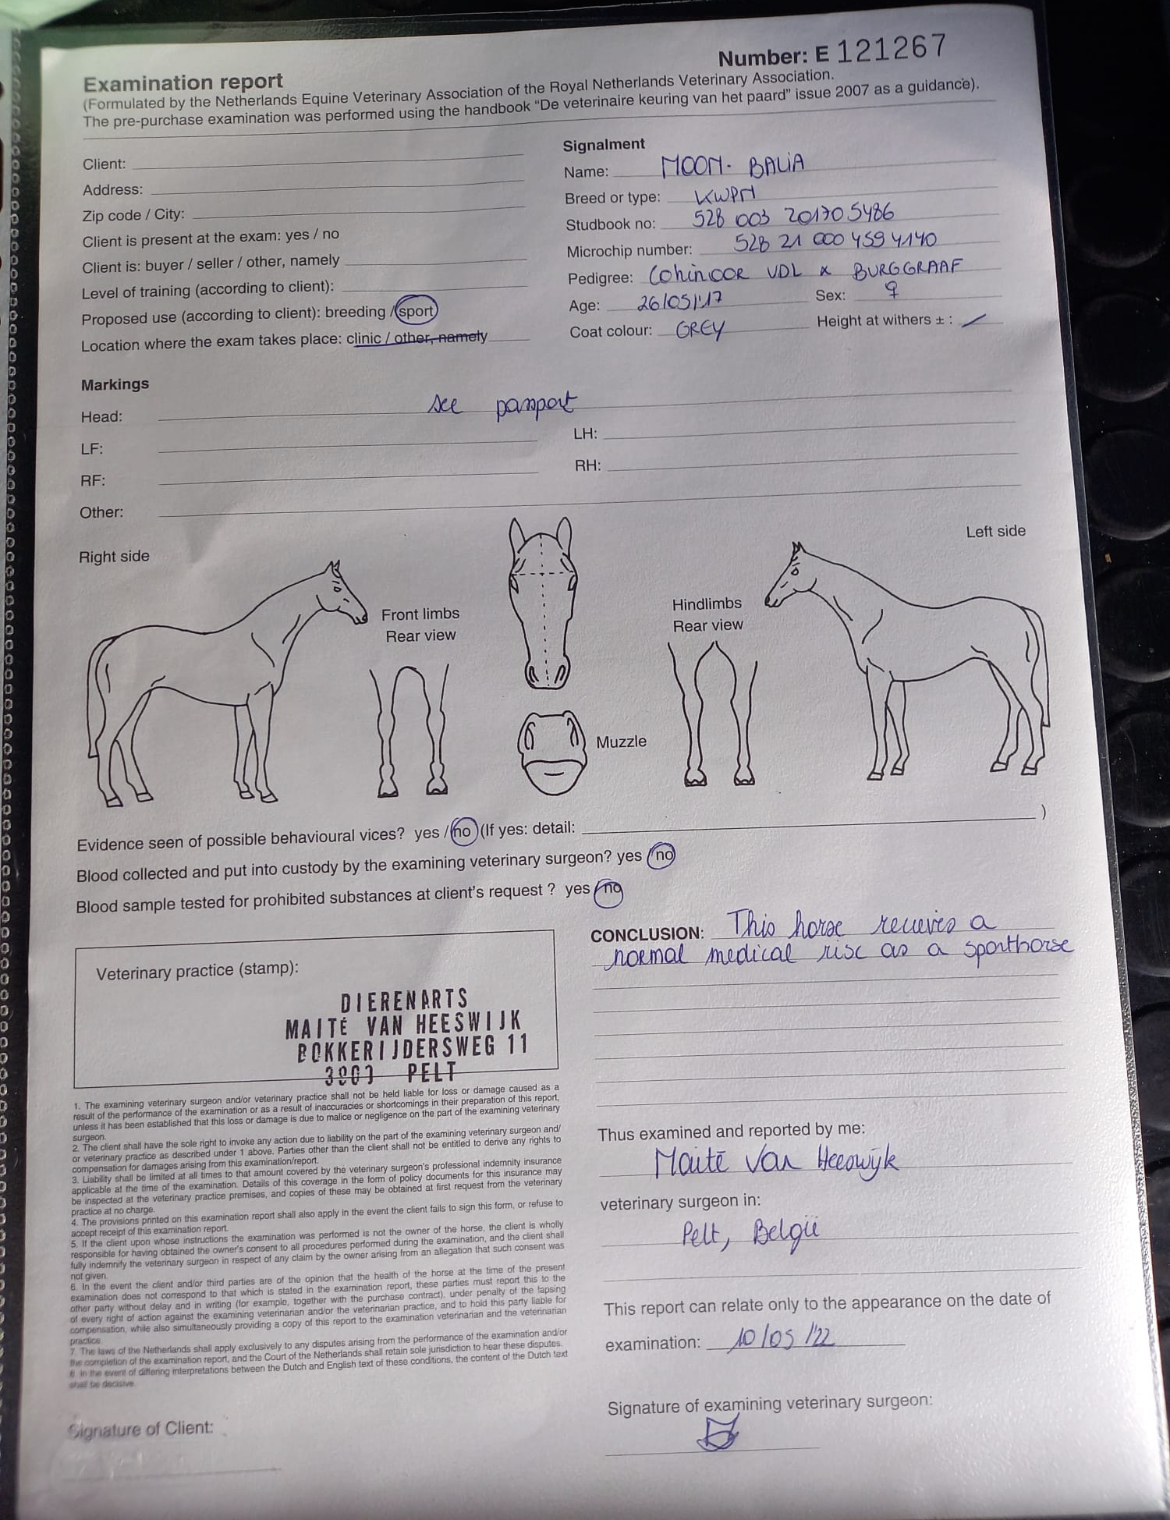 Number: E 121267
Examination report
(Formulated by the Netherlands Equine Veterinary Association of the Royal Netherlands Veterinary Association.
The pre-purchase examination was performed using the handbook “De veterinaire keuring van het paard” issue 2007 as a guidance).
Client:
Address:
Zip code / City:
Client is present at the exam: yes / no
Client is: buyer / seller / other, namely
Level of training (according to client):
Proposed use (according to client): breeding / sport
Location where the exam takes place: clinic / other, namely
Signalment
Name: MOOM-BALIA
Breed or type: KWPN
Studbook no: 528 003 201705486
Microchip number: 528 21 000 459 4140
Pedigree: Cohinoor VDL x BURGGRAAF
Age: 26/05/17 Sex: ♀
Coat colour: GREY Height at withers ± : /
Markings
Head: see passport
LF: LH:
RF: RH:
Other:
Right side
Left side
Front limbs
Rear view
Hindlimbs
Rear view
Muzzle
Evidence seen of possible behavioural vices? yes / no (If yes: detail: )
Blood collected and put into custody by the examining veterinary surgeon? yes / no
Blood sample tested for prohibited substances at client's request ? yes / no
Veterinary practice (stamp):
DIERENARTS
MAITÉ VAN HEESWIJK
BOKKERIJDERSWEG 11
PELT
CONCLUSION: This horse receives a
normal medical risc as a sporthorse
1. The examining veterinary surgeon and/or veterinary practice shall not be held liable for loss or damage caused as a
result of the performance of the examination or as a result of inaccuracies or shortcomings in their preparation of this report,
unless it has been established that this loss or damage is due to malice or negligence on the part of the examining veterinary
surgeon.
2. The client shall have the sole right to invoke any action due to liability on the part of the examining veterinary surgeon and/
or veterinary practice as described under 1 above. Parties other than the client shall not be entitled to derive any rights to
compensation for damages arising from this examination/report.
3. Liability shall be limited at all times to that amount covered by the veterinary surgeon's professional indemnity insurance
applicable at the time of the examination. Details of this coverage in the form of policy documents for this insurance may
be inspected at the veterinary practice premises, and copies of these may be obtained at first request from the veterinary
practice at no charge.
4. The provisions printed on this examination report shall also apply in the event the client fails to sign this form, or refuse to
accept receipt of this examination report.
5. If the client upon whose instructions the examination was performed is not the owner of the horse, the client is wholly
responsible for having obtained the owner's consent to all procedures performed during the examination, and the client shall
fully indemnify the veterinary surgeon in respect of any claim by the owner arising from an allegation that such consent was
not given.
6. In the event the client and/or third parties are of the opinion that the health of the horse at the time of the present
examination does not correspond to that which is stated in the examination report, these parties must report this to the
other party without delay and in writing (for example, together with the purchase contract), under penalty of the lapsing
of every right of action against the examining veterinarian and/or the veterinarian practice, and to hold this party liable for
compensation, while also simultaneously providing a copy of this report to the examination veterinarian and the veterinarian
practice.
7. The laws of the Netherlands shall apply exclusively to any disputes arising from the performance of the examination and/or
the completion of the examination report, and the Court of the Netherlands shall retain sole jurisdiction to hear these disputes.
8. In the event of differing interpretations between the Dutch and English text of these conditions, the content of the Dutch text
shall be decisive.
Thus examined and reported by me:
Maité Van Heeswijk
veterinary surgeon in:
Pelt, België
This report can relate only to the appearance on the date of
examination: 10/05/22
Signature of Client:
Signature of examining veterinary surgeon: